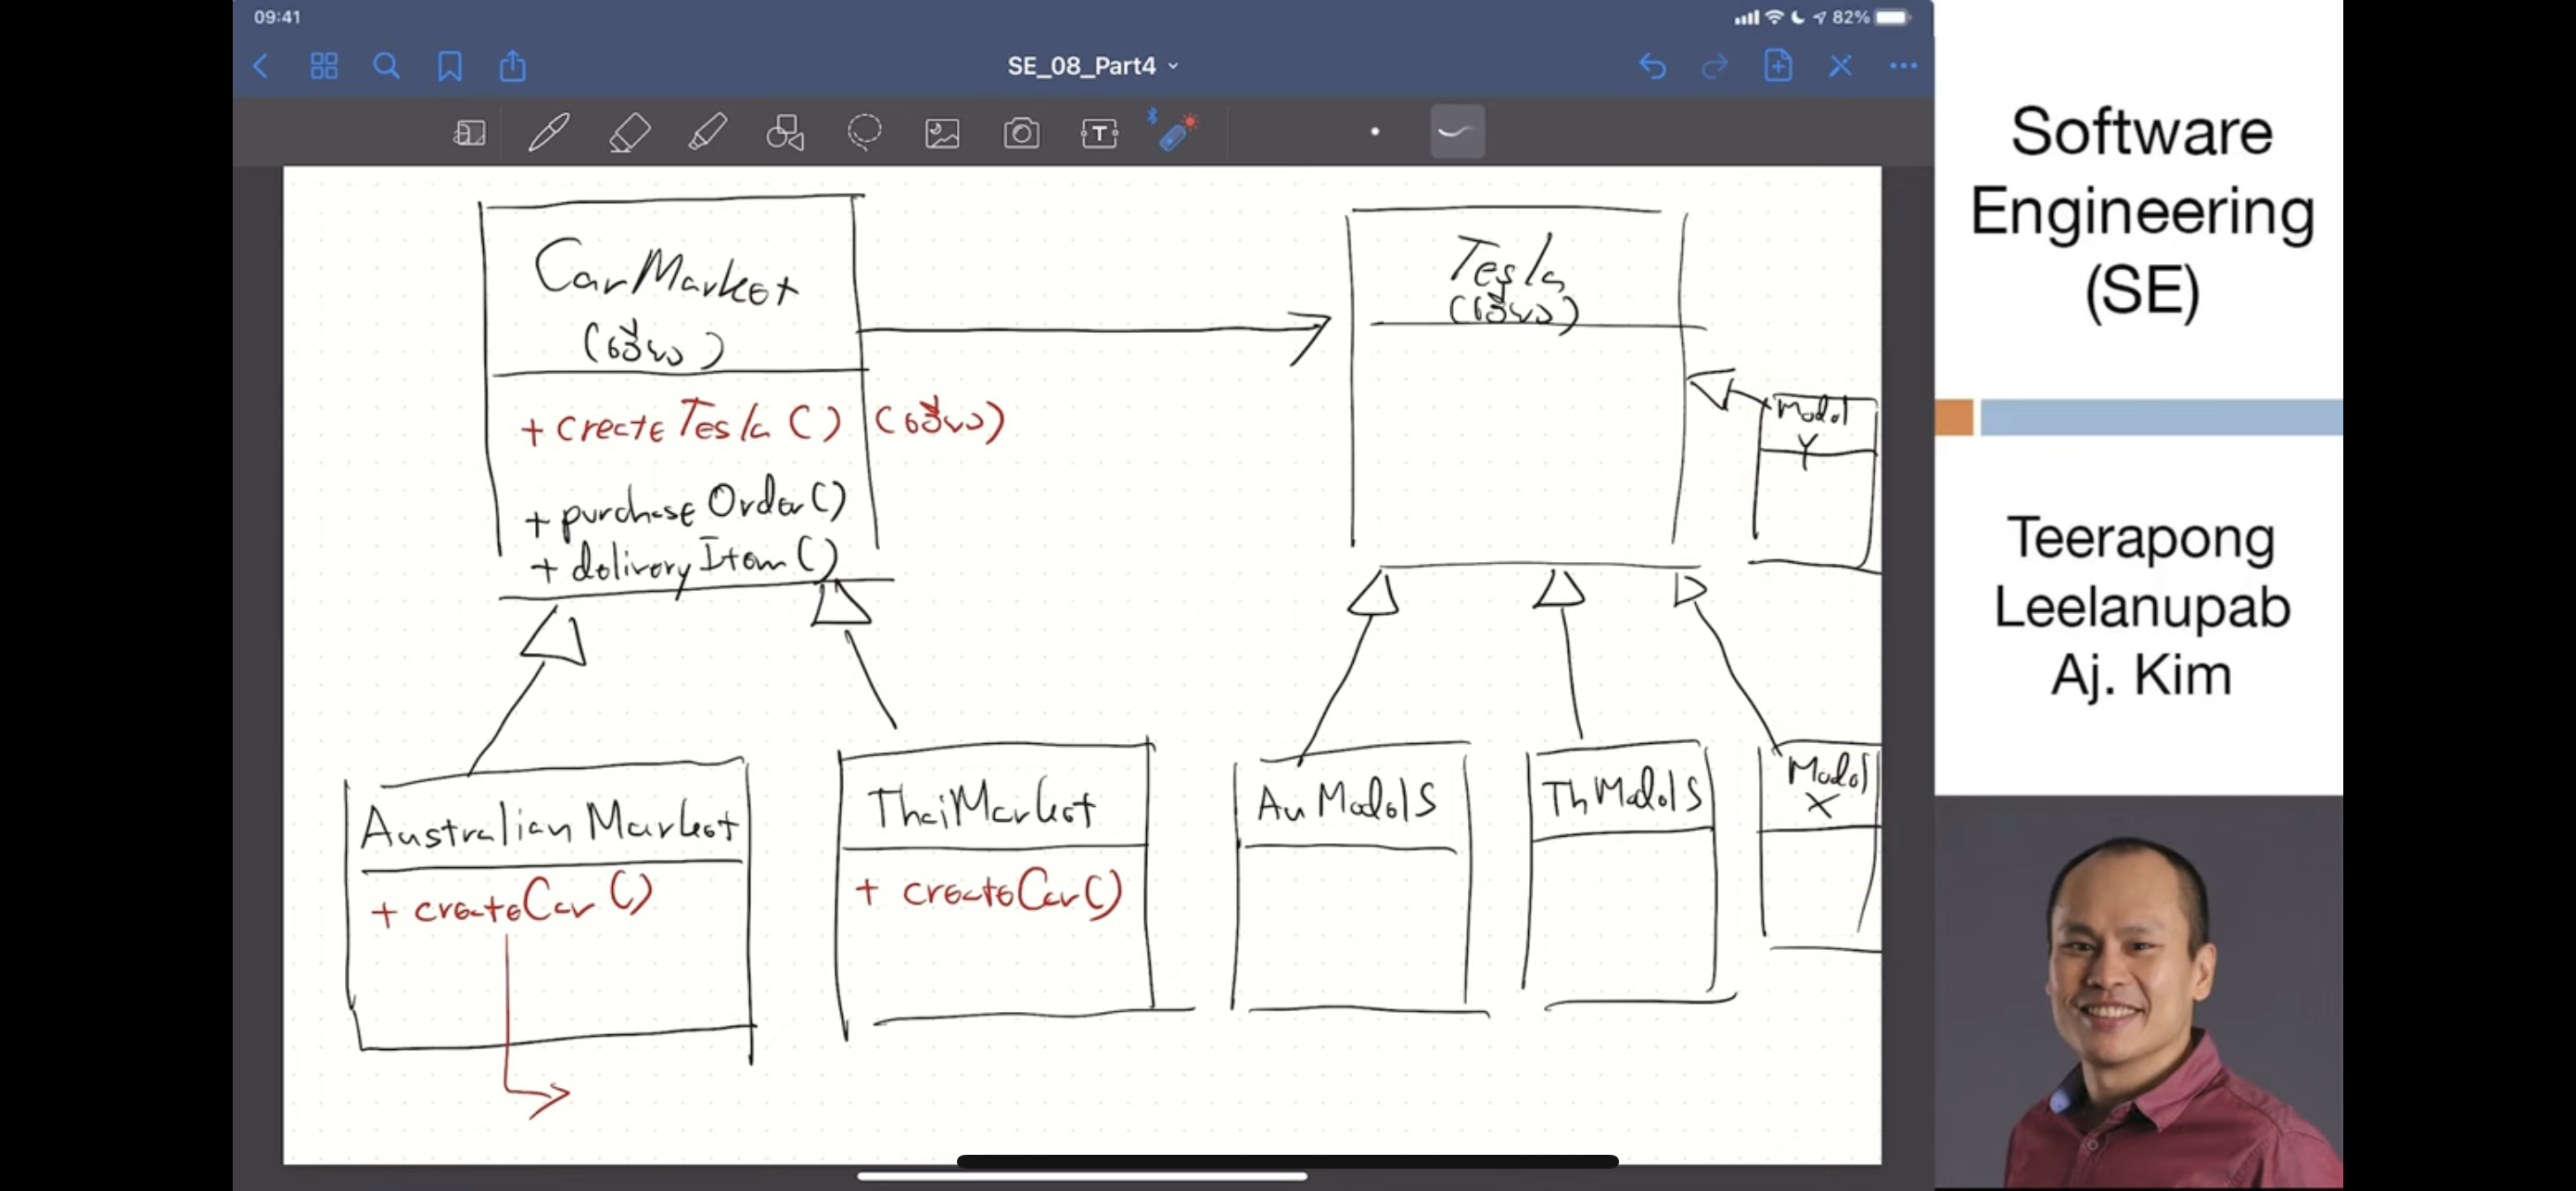 09:41
82%
SE_08_Part4
T
CarMarket
(เอียง)
+ createTesla () (เอียง)
+ purchaseOrder()
+ deliveryItem()
Tesla
(เอียง)
Model
Y
AustralianMarket
+ createCar ()
ThaiMarket
+ createCar()
AuModelS
ThModelS
Model
X
Software
Engineering
(SE)
Teerapong
Leelanupab
Aj. Kim